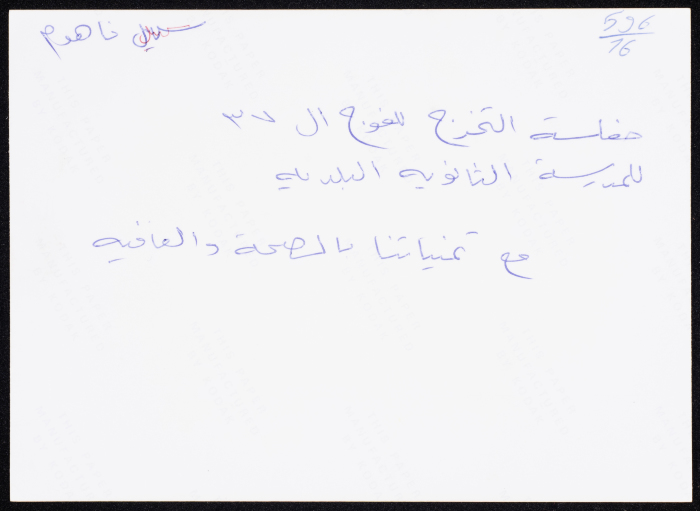 596
16
سهيل فاهوم
حفلة التخرج للفوج ال ٣٧
للمدرسة الثانويه البلديه
مع تمنياتنا بالصحة والعافيه